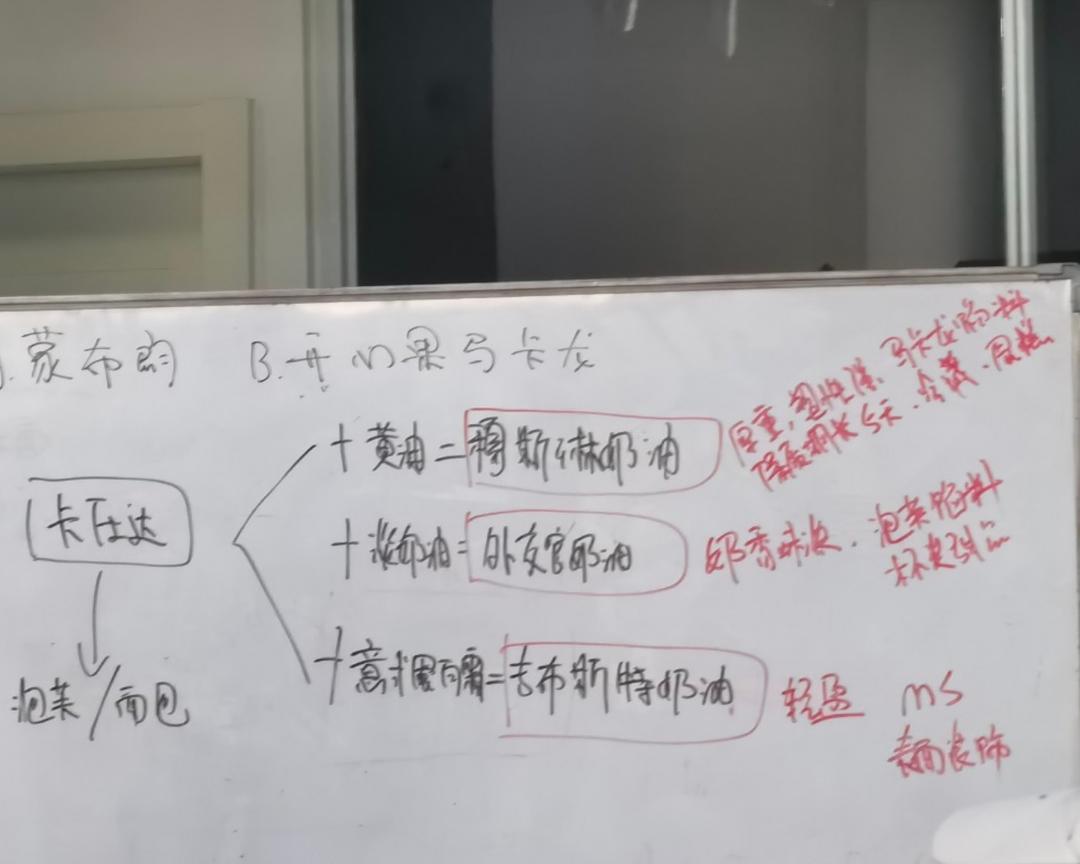 .蒙布朗 B.开心果马卡龙
卡仕达
泡芙/面包
+黄油=穆斯林奶油
厚重,塑性强、马卡龙馅料
保质期长5天.冷藏.
+淡奶油=外交官奶油
奶香味浓.泡芙馅料
杯类
+意式蛋白霜=吉布斯特奶油
轻盈 ms
表面装饰